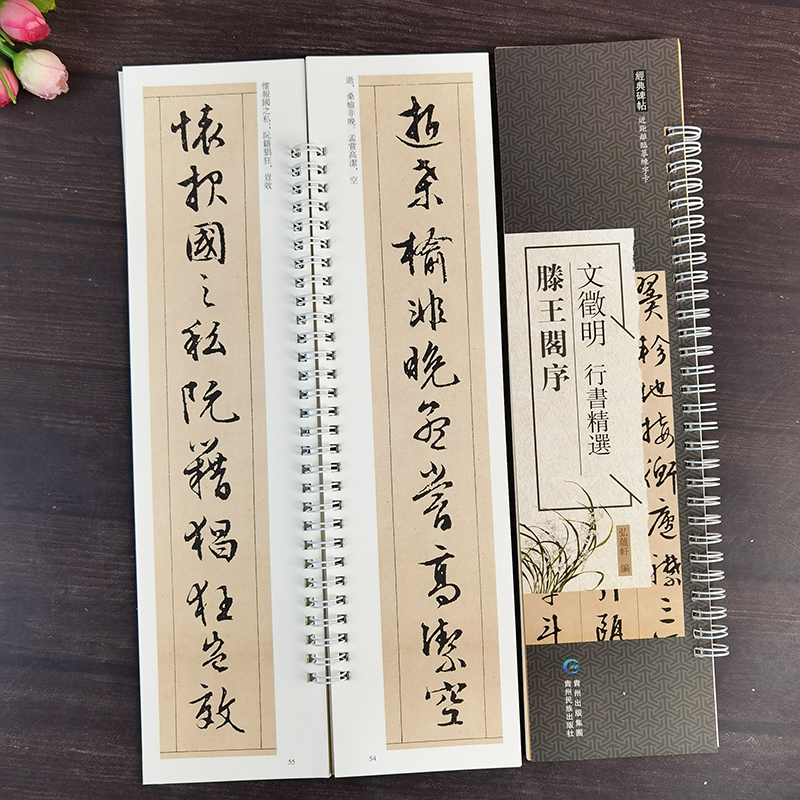 經典碑帖
近距離臨摹練字卡
文徵明 行書精選
滕王閣序
翼軫地接衡廬襟三
斗
弘蘊軒 編
貴州出版集團
貴州民族出版社
逝桑榆非晚孟嘗高潔空
逝，桑榆非晚。孟嘗高潔，空
54
懷報國之私；阮籍猖狂，豈效
懷報國之私阮籍猖狂豈效
55